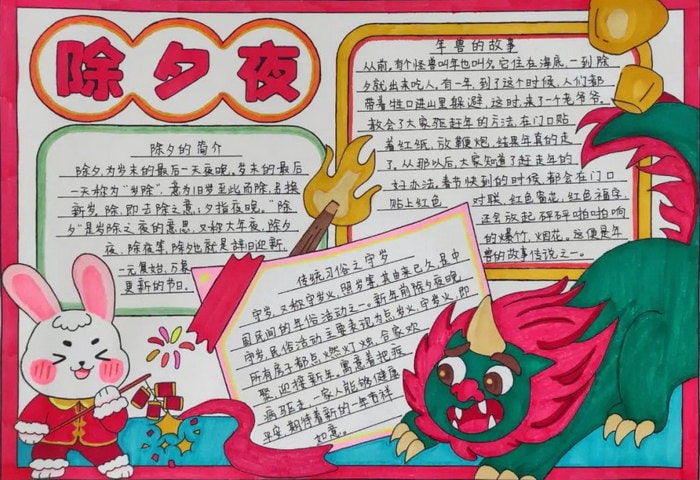 除夕夜
除夕的简介
除夕,为岁末的最后一天夜晚。岁末的最后
一天称为“岁除”,意为旧岁至此而除,另换
新岁。除,即去除之意;夕指夜晚。“除
夕”是岁除之夜的意思,又称大年夜、除夕
夜、除夜等,除夕也就是辞旧迎新、
一元复始、万象
更新的节日。
年兽的故事
从前,有个怪兽叫年也叫夕,它住在海底,一到除
夕就出来吃人,有一年,到了这个时候,人们都
带着牲口进山里躲避,这时,来了一个老爷爷。
教会了大家驱赶年的方法,在门口贴
着红纸,放鞭炮,结果年真的走
了。从那以后,大家知道了赶走年的
好办法。春节快到的时候,都会在门口
贴上红色
对联,红色窗花,红色福字,
还会放起砰砰啪啪响
的爆竹,烟花。这便是年
兽的故事传说之一。
传统习俗之守岁
守岁,又称守岁火、照岁等,其由来已久,是中
国民间的年俗活动之一。新年前除夕夜晚
守岁,民俗活动主要表现为点岁火、守岁火,即
所有房子都点燃灯烛,合家欢
聚,迎接新年,寓意着把疾
病驱走,一家人能够健康
平安,期待着新的一年吉祥
如意。